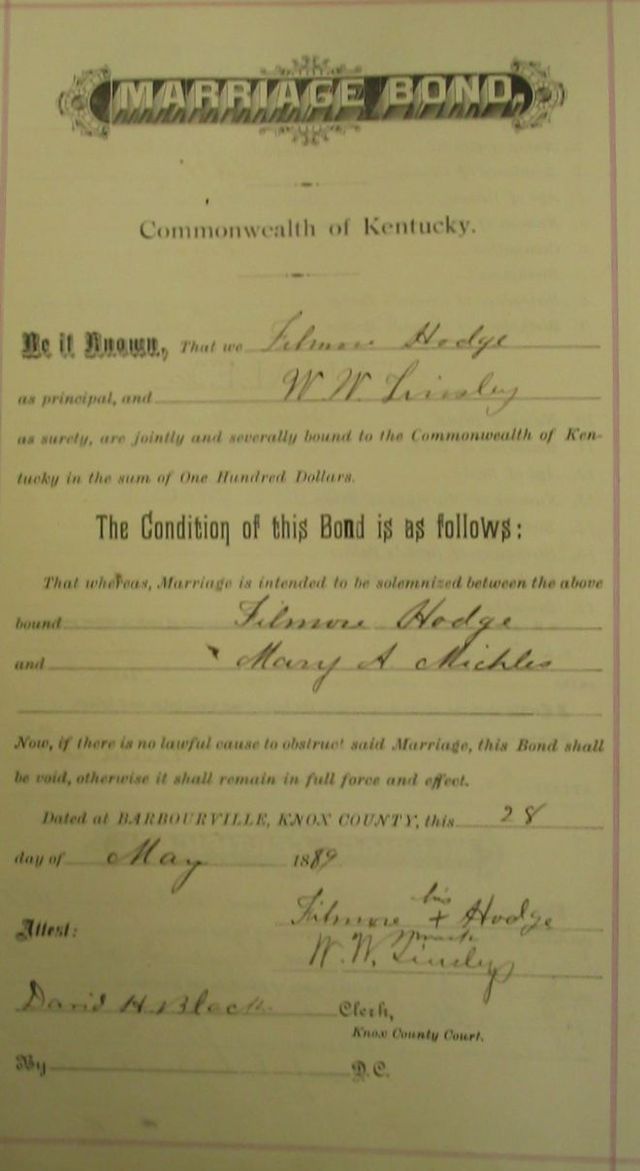 MARRIAGE BOND,
Commonwealth of Kentucky.
Be it Known, That we Filmore Hodge
as principal, and W. W. Tinsley
as surety, are jointly and severally bound to the Commonwealth of Ken-
tucky in the sum of One Hundred Dollars.
The Condition of this Bond is as follows:
That whereas, Marriage is intended to be solemnized between the above
bound Filmore Hodge
and Mary A Michles
Now, if there is no lawful cause to obstruct said Marriage, this Bond shall
be void, otherwise it shall remain in full force and effect.
Dated at BARBOURVILLE, KNOX COUNTY, this 28
day of May 1889
his
Filmore + Hodge
mark
Attest:
W. W. Tinsley
David H. Black Clerk,
Knox County Court.
By D.C.